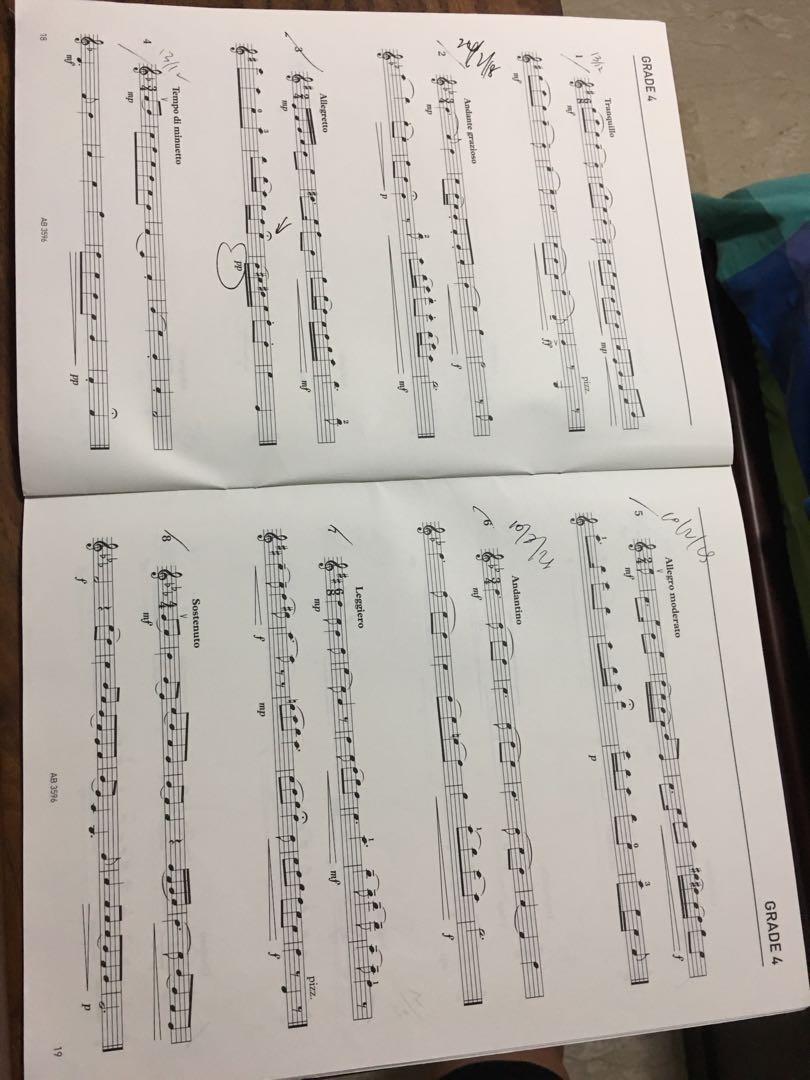 GRADE 4
13/12
1
Tranquillo
mf
mp
mf
ff
pizz.
2
Andante grazioso
mp
f
p
2
mf
3
Allegretto
mp
mf
2
0
3
pp
4
Tempo di minuetto
mp
mf
pp
18
AB 3596
GRADE 4
5
Allegro moderato
mf
f
1
p
0
3
6
Andantino
mf
1
f
7
Leggiero
mp
mf
1
1
f
mp
f
pizz.
8
Sostenuto
mf
f
p
AB 3596
19